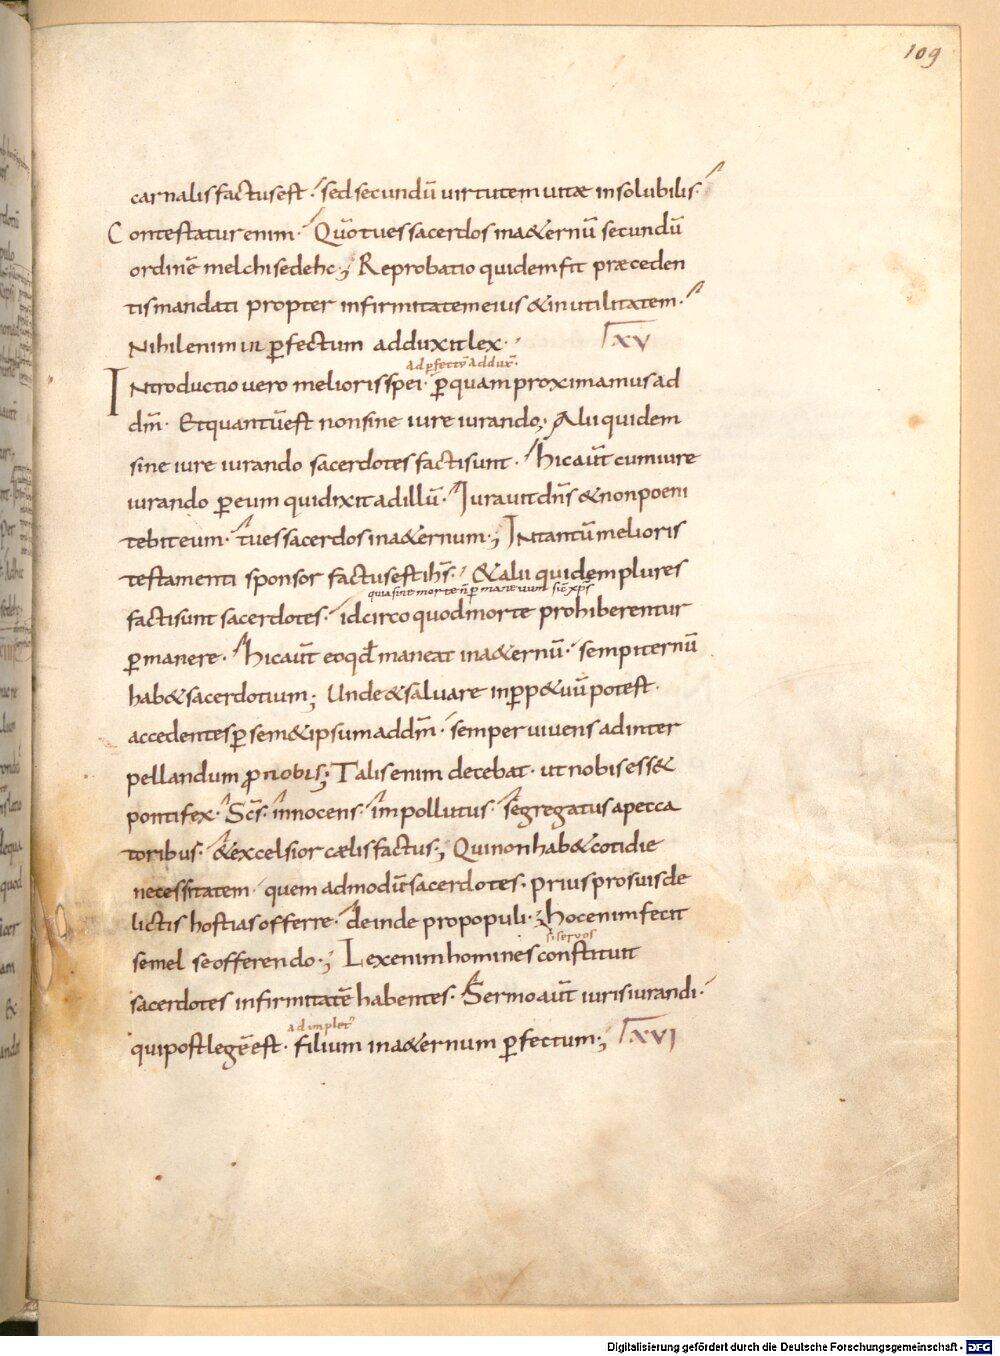 109
carnalis factus est · sed secundū uirtutem uitæ insolubilis ·
Contestatur enim · Qm̄ tu es sacerdos in a&ernū secundū
ordinē melchisedehc ·; Reprobatio quidem fit præceden
tis mandati propter infirmitatem eius & inutilitatem ·
Nihil enim in ꝑfectum adduxit lex · XV
ad ꝑfectū addux̄ ·
Introductio uero melioris spei · ꝑ quam proximamus ad
dm̄ · Et quantū est non sine iure iurando ·; Alii quidem
sine iure iurando sacerdotes facti sunt · hic aūt cum iure
iurando ꝑ eum qui dixit ad illū · Iurauit dn̄s & non poeni
tebit eum · tu es sacerdos in a&ernum ·; In tantū melioris
testamenti sponsor factus est ih̄s · & alii quidem plures
quia sine morte n̄ ꝑmaneuum sic xp̄s
facti sunt sacerdotes · idcirco quod morte prohiberentur
ꝑmanere · hic aūt eo qđ maneat in a&ernū · sempiternū
hab& sacerdotium ; Unde & saluare in ꝑp&uū potest ·
accedentes ꝑ sem&ipsum ad dm̄ · semper uiuens ad inter
pellandum ꝓ nobis ; Talis enim decebat · ut nobis ess&
pontifex · Sc̄s · innocens · impollutus · segregatus a pecca
toribus · & excelsior cælis factus ·; Qui non hab& cotidie
necessitatem · quem ad modū sacerdotes · prius pro suis de
lictis hostias offerre · deinde pro populi ·; hoc enim fecit
semel se offerendo ·; Lex enim homines constituit
sacerdotes infirmitatē habentes · Sermo aūt iuris iurandi ·
ad implet̄
qui post legē est · filium in a&ernum ꝑfectum ·; XVI
Digitalisierung gefördert durch die Deutsche Forschungsgemeinschaft - DFG